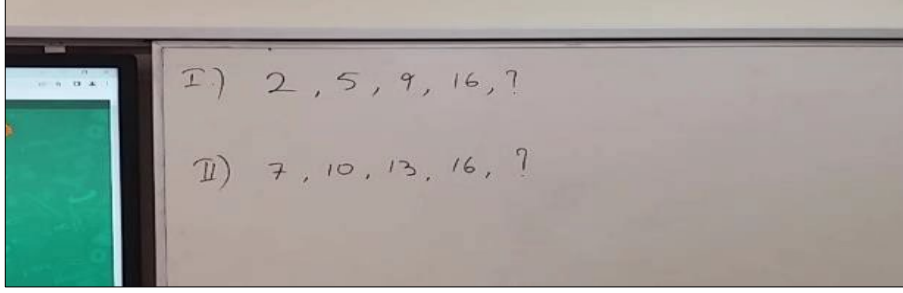 I) 2, 5, 9, 16, ?
II) 7, 10, 13, 16, ?